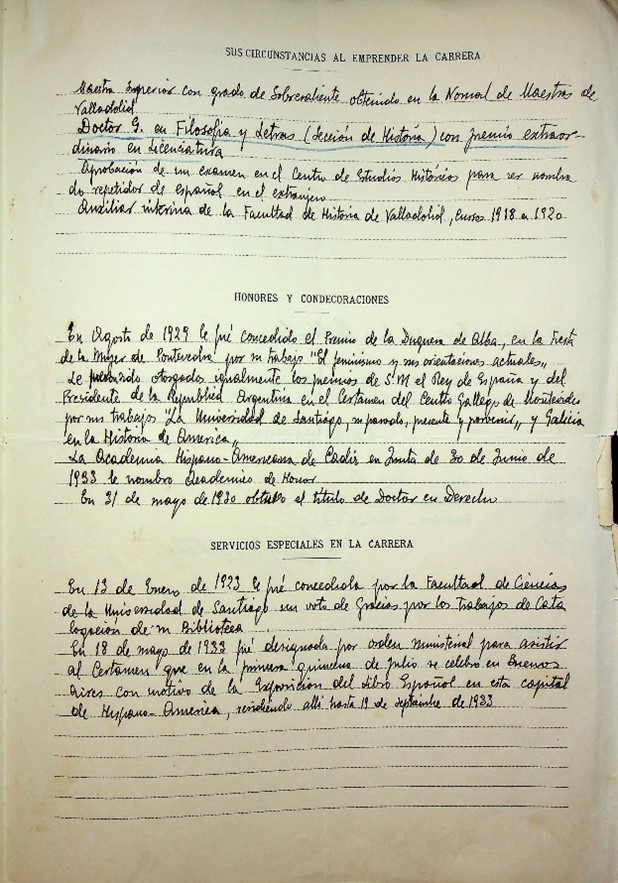 SUS CIRCUNSTANCIAS AL EMPRENDER LA CARRERA
Maestra Superior con grado de Sobresaliente obtenido en la Normal de Maestras de
Valladolid
Doctor G. en Filosofia y Letras (Sección de Historia) con premio extraor-
dinario en Licenciatura
Aprobación de un examen en el Centro de Estudios Históricos para ser nombra
do repetidor de español en el extranjero
Auxiliar interina de la Facultad de Historia de Valladolid, Cursos 1918 a 1920
HONORES Y CONDECORACIONES
En Agosto de 1929 le fué concedido el Premio de la Duquesa de Alba, en la Fiesta
de la Mujer de Pontevedra por su trabajo "El feminismo y sus orientaciones actuales"
Le otorgados igualmente los premios de S.M el Rey de España y del
Presidente de la Republica Argentina en el Certamen del Centro Gallego de Montevideo
por sus trabajos "La Universidad de Santiago, su pasado, presente y porvenir" y Galicia
en la Historia de America"
La Academia Hispano-Americana de Cadiz en Junta de 30 de Junio de
1933 le nombro Academico de Honor
En 31 de mayo de 1930 obtubo el titulo de Doctor en Derecho
SERVICIOS ESPECIALES EN LA CARRERA
En 13 de Enero de 1923 le fué concedida por la Facultad de Ciencias
de la Universidad de Santiago un voto de Gracias por los trabajos de Cata
logación de su Biblioteca
En 18 de mayo de 1933 fué designada por orden ministerial para asistir
al Certamen que en la primera quincena de Julio se celebro en Buenos
Aires con motivo de la Exposición del Libro Español en esta capital
de Hispano-America, residiendo allí hasta 19 de septiembre de 1933